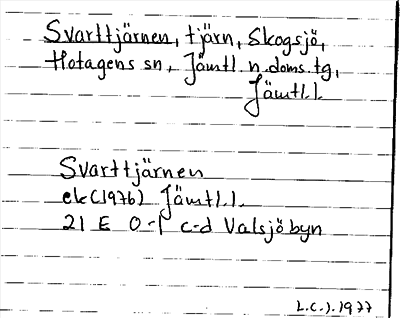 Svarttjärnen, tjärn, Skogsjö,
Hotagens sn, Jämtl. n. doms. tg,
Jämtl.l.
Svarttjärnen
ek(1976) Jämtl.l.
21 E 0-1 c-d Valsjöbyn
L.C.J. 1977